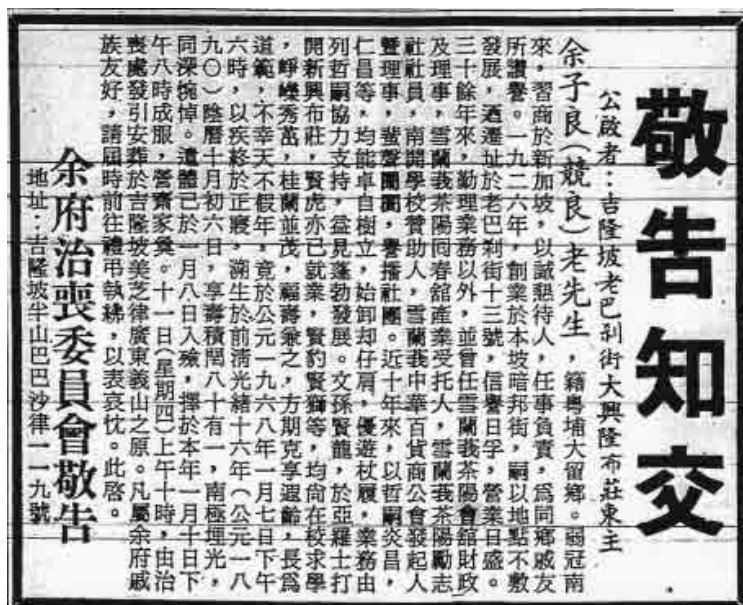 敬告知交
公啟者：吉隆坡老巴剎街大興隆布莊東主
余子良（競良）老先生，籍粵埔大留鄉。弱冠南
來，習商於新加坡，以誠懇待人，任事負責，爲同鄉戚友
所讚譽。一九二六年，創業於本坡暗邦街，嗣以地點不敷
發展，迺遷址於老巴剎街十三號，信譽日孚，營業日盛。
三十餘年來，勤理業務以外，並曾任雪蘭莪茶陽會舘財政
及理事，雪蘭莪茶陽囘春舘產業受托人，雪蘭莪茶陽勵志
社社員，南開學校贊助人，雪蘭莪中華百貨商公會發起人
暨理事，蜚聲闤闠，譽播社團。近十年來，以哲嗣炎昌，
仁昌等，均能卓自樹立，始卸却仔肩，優遊杖履，業務由
列哲嗣協力支持，益見蓬勃發展。文孫賢龍，於亞羅士打
開新興布莊，賢虎亦已就業，賢豹賢獅等，均尙在校求學
，崢嶸秀茁，桂蘭並茂，福壽兼之，方期克享遐齡，長爲
道範，不幸天不假年，竟於公元一九六八年一月七日下午
六時，以疾終於正寢，溯生於前清光緒十六年（公元一八
九〇）陰曆十月初六日，享壽積閏八十有一，南極埋光，
同深惋悼。遺體已於一月八日入殮，擇於本年一月十日下
午八時成服，營齋家奠。十一日（星期四）上午十時，由治
喪處發引安葬於吉隆坡美芝律廣東義山之原。凡屬余府戚
族友好，請屆時前往禮弔執紼，以表哀忱。此啓。
余府治喪委員會敬告
地址：吉隆坡半山巴巴沙律一一九號